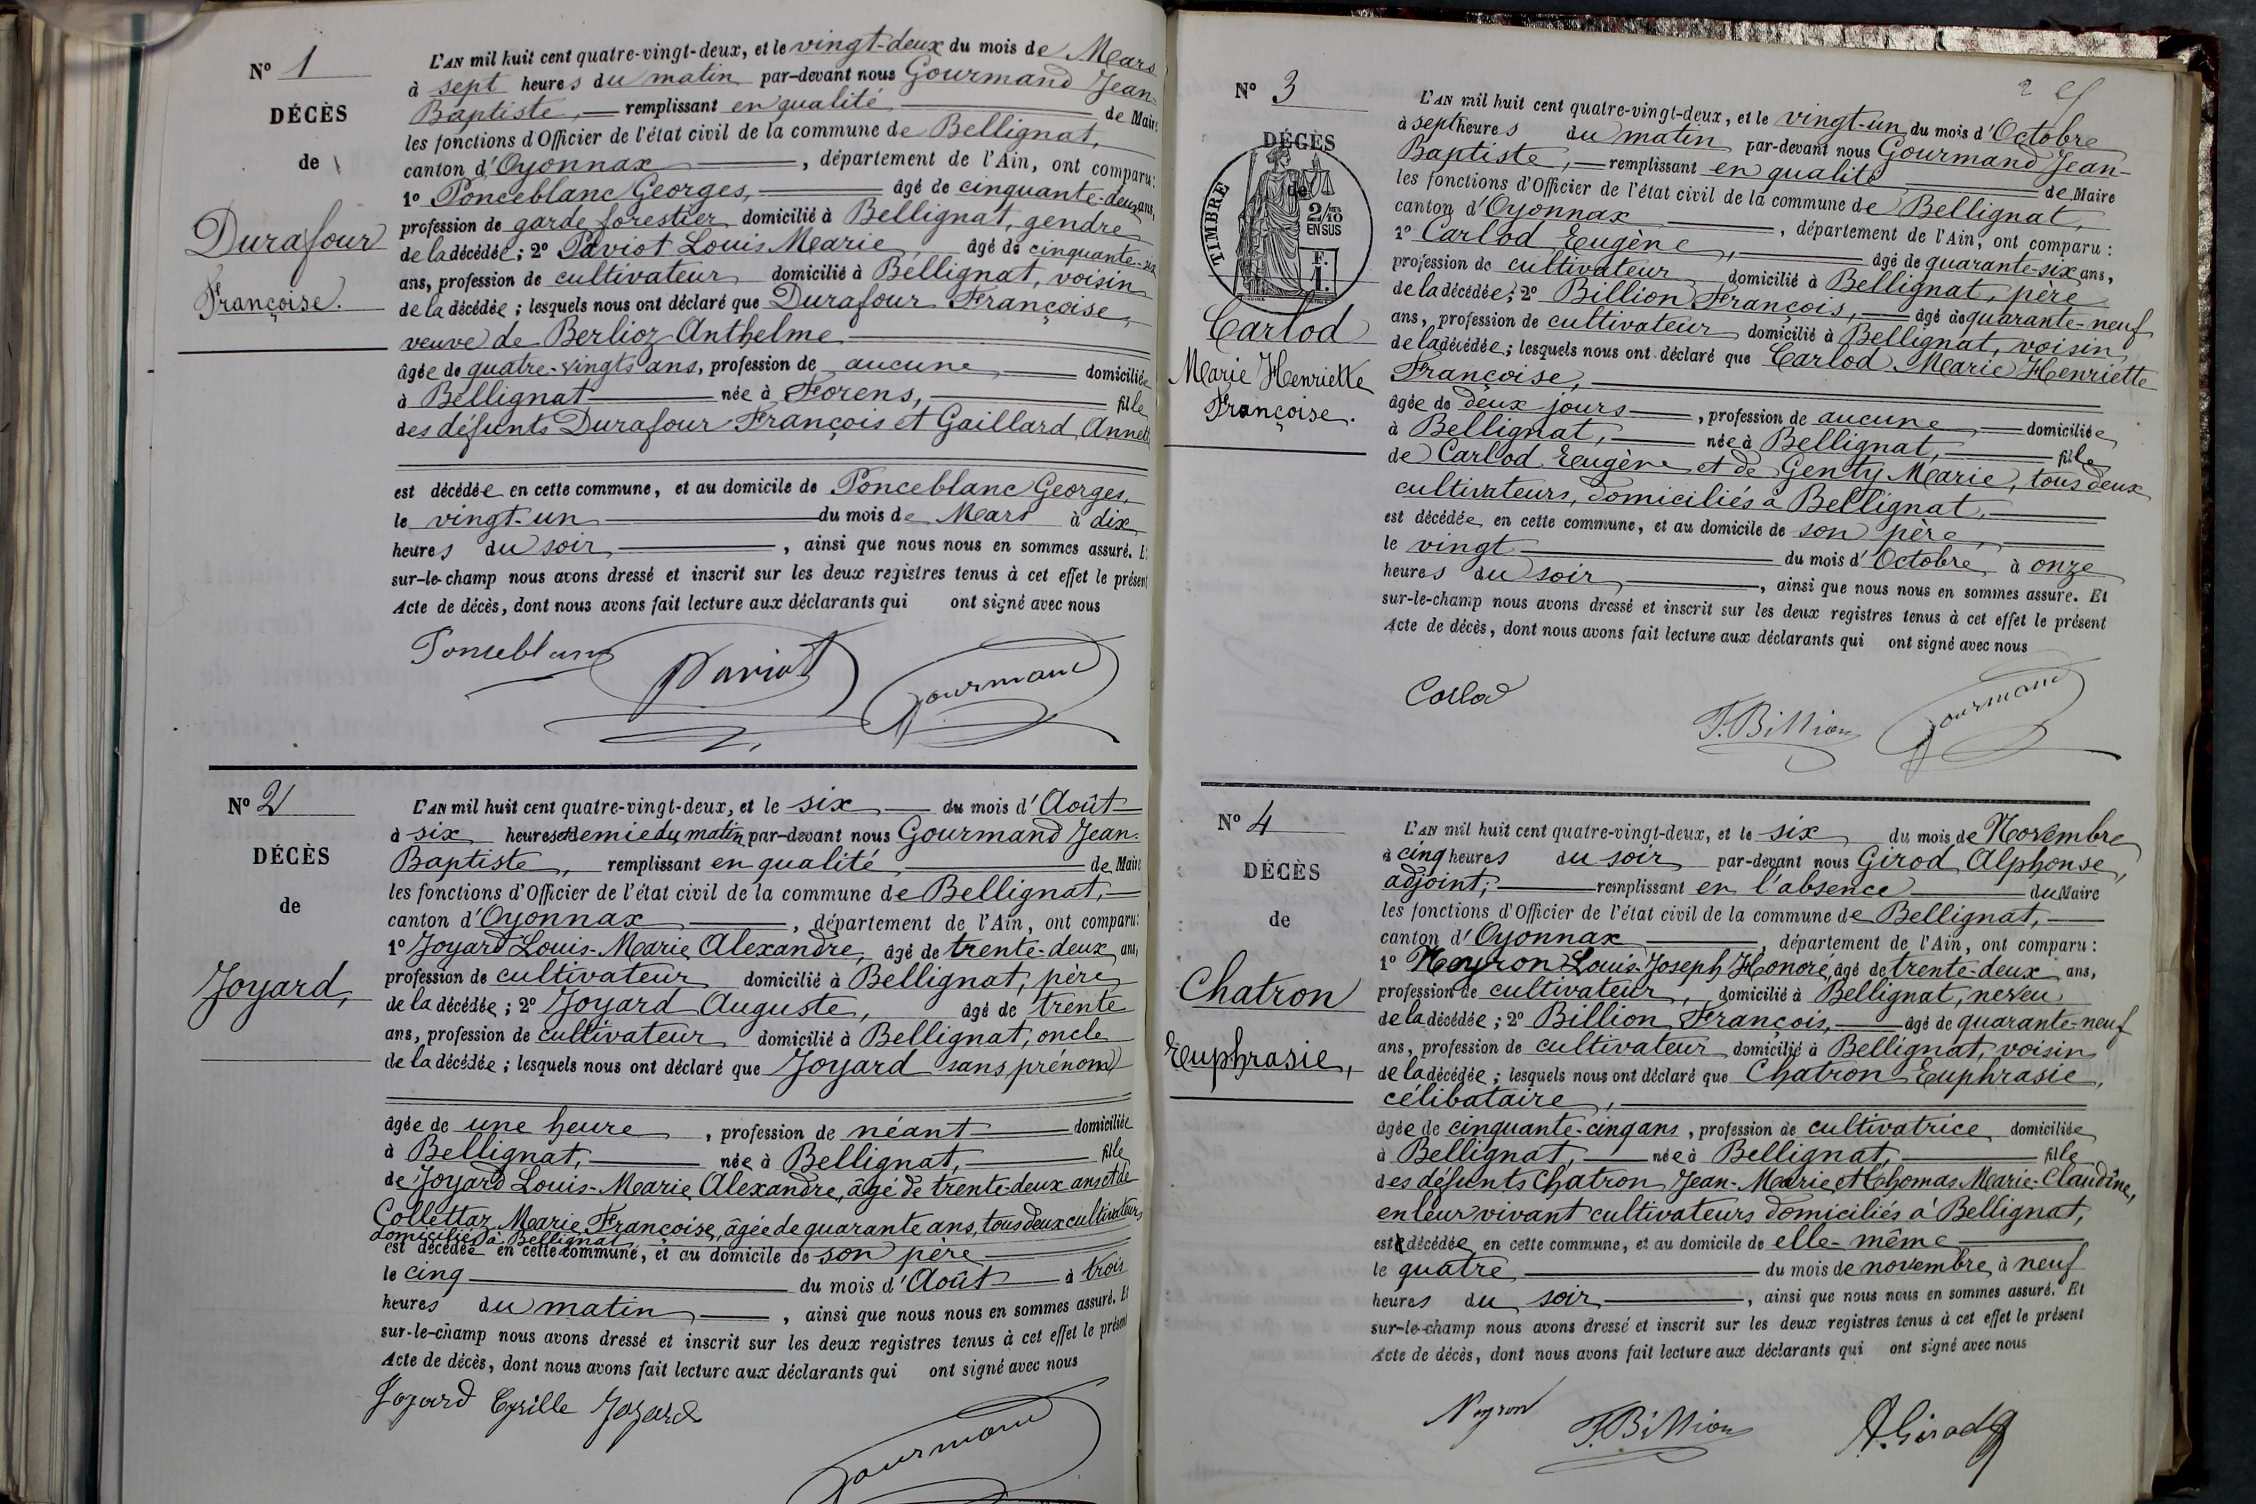 N° 1
DÉCÈS
de
Durafour
Françoise.
L'AN mil huit cent quatre-vingt-deux, et le vingt-deux du mois de Mars
à sept heures du matin par-devant nous Gourmand Jean-
Baptiste, remplissant en qualité de Maire
les fonctions d'Officier de l'état civil de la commune de Bellignat,
canton d'Oyonnax, département de l'Ain, ont comparu:
1° Ponceblanc Georges, âgé de cinquante-deux ans,
profession de garde forestier domicilié à Bellignat, gendre
de la décédée; 2° Paviot Louis Marie, âgé de cinquante-six
ans, profession de cultivateur domicilié à Bellignat, voisin
de la décédée; lesquels nous ont déclaré que Durafour Françoise,
veuve de Berlioz Anthelme
âgée de quatre-vingts ans, profession de aucune domiciliée
à Bellignat née à Forens, fille
des défunts Durafour François et Gaillard Annette
est décédée en cette commune, et au domicile de Ponceblanc Georges,
le vingt-un du mois de Mars à dix
heures du soir, ainsi que nous nous en sommes assuré. Et
sur-le-champ nous avons dressé et inscrit sur les deux registres tenus à cet effet le présent
Acte de décès, dont nous avons fait lecture aux déclarants qui ont signé avec nous
Ponceblanc Paviot Gourmand
N° 2
DÉCÈS
de
Joyard,
L'AN mil huit cent quatre-vingt-deux, et le six du mois d'Août
à six heures et demie du matin par-devant nous Gourmand Jean-
Baptiste, remplissant en qualité de Maire
les fonctions d'Officier de l'état civil de la commune de Bellignat,
canton d'Oyonnax, département de l'Ain, ont comparu:
1° Joyard Louis-Marie Alexandre, âgé de trente-deux ans,
profession de cultivateur domicilié à Bellignat, père
de la décédée; 2° Joyard Auguste, âgé de trente
ans, profession de cultivateur domicilié à Bellignat, oncle
de la décédée; lesquels nous ont déclaré que Joyard sans prénom
âgée de une heure, profession de néant domiciliée
à Bellignat, née à Bellignat, fille
de Joyard Louis-Marie Alexandre, âgé de trente-deux ans et de
Collettaz Marie Françoise, âgée de quarante ans, tous deux cultivateurs
domiciliés à Bellignat
est décédée en cette commune, et au domicile de son père
le cinq du mois d'Août à trois
heures du matin, ainsi que nous nous en sommes assuré. Et
sur-le-champ nous avons dressé et inscrit sur les deux registres tenus à cet effet le présent
Acte de décès, dont nous avons fait lecture aux déclarants qui ont signé avec nous
Joyard Cyrille Joyard
Gourmand
N° 3
DÉCÈS
de
TIMBRE
2/10 EN SUS
F. 1.
Carlod
Marie Henriette
Françoise.
2
L'AN mil huit cent quatre-vingt-deux, et le vingt-un du mois d'Octobre
à sept heures du matin par-devant nous Gourmand Jean-
Baptiste, remplissant en qualité de Maire
les fonctions d'Officier de l'état civil de la commune de Bellignat,
canton d'Oyonnax, département de l'Ain, ont comparu:
1° Carlod Eugène, âgé de quarante-six ans,
profession de cultivateur domicilié à Bellignat, père
de la décédée; 2° Billion François, âgé de quarante-neuf
ans, profession de cultivateur domicilié à Bellignat, voisin
de la décédée; lesquels nous ont déclaré que Carlod Marie Henriette
Françoise,
âgée de deux jours, profession de aucune domiciliée
à Bellignat, née à Bellignat, fille
de Carlod Eugène et de Genty Marie, tous deux
cultivateurs, domiciliés à Bellignat,
est décédée en cette commune, et au domicile de son père,
le vingt du mois d'Octobre à onze
heures du soir, ainsi que nous nous en sommes assuré. Et
sur-le-champ nous avons dressé et inscrit sur les deux registres tenus à cet effet le présent
Acte de décès, dont nous avons fait lecture aux déclarants qui ont signé avec nous
Carlod F. Billion Gourmand
N° 4
DÉCÈS
de
Chatron
Euphrasie,
L'AN mil huit cent quatre-vingt-deux, et le six du mois de Novembre
à cinq heures du soir par-devant nous Girod Alphonse,
adjoint, remplissant en l'absence du Maire
les fonctions d'Officier de l'état civil de la commune de Bellignat,
canton d'Oyonnax, département de l'Ain, ont comparu:
1° Neyron Louis-Joseph Honoré, âgé de trente-deux ans,
profession de cultivateur, domicilié à Bellignat, neveu
de la décédée; 2° Billion François, âgé de quarante-neuf
ans, profession de cultivateur domicilié à Bellignat, voisin
de la décédée; lesquels nous ont déclaré que Chatron Euphrasie,
célibataire,
âgée de cinquante-cinq ans, profession de cultivatrice domiciliée
à Bellignat, née à Bellignat, fille
des défunts Chatron Jean-Marie et Thomas Marie-Claudine,
en leur vivant cultivateurs domiciliés à Bellignat,
est décédée en cette commune, et au domicile de elle-même
le quatre du mois de novembre à neuf
heures du soir, ainsi que nous nous en sommes assuré. Et
sur-le-champ nous avons dressé et inscrit sur les deux registres tenus à cet effet le présent
Acte de décès, dont nous avons fait lecture aux déclarants qui ont signé avec nous
Neyron F. Billion A. Girod